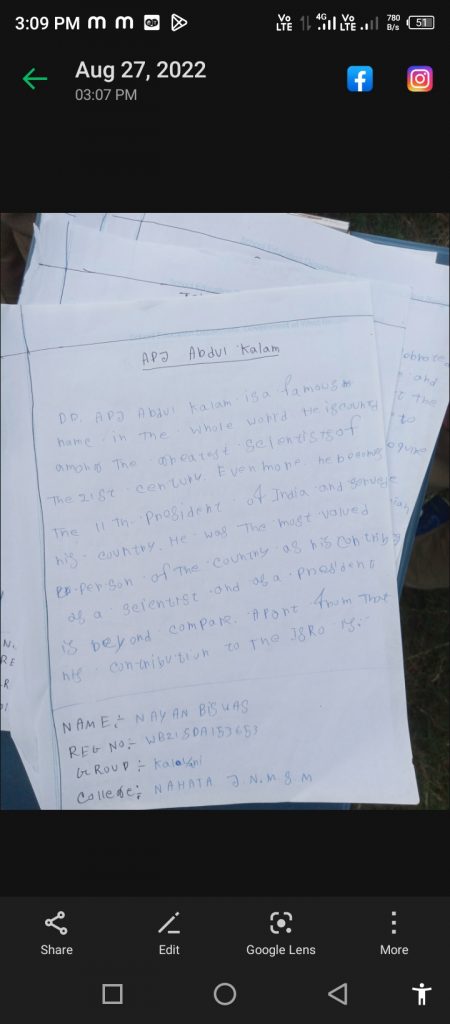 3:09 PM m m
Vo LTE 4G Vo LTE 780 B/s 51
Aug 27, 2022
03:07 PM
APJ Abdul Kalam
DR. APJ Abdul Kalam is a famous
name in The whole world. He is count
among The greatest scientists of
The 21st century. Even more. he becomes
The 11 Th President of India and serve
his country. He was The most valued
person of The country as his contrib
as a scientist and as a president
is beyond compare. Apart from That
his contribution to The ISRO is.
NAME:- NAYAN BISWAS
REG NO:- WB21SDA153653
GROUP:- Kalyani
College:- NAHATA J.N.M.S.M
and
the
to
Share
Edit
Google Lens
More